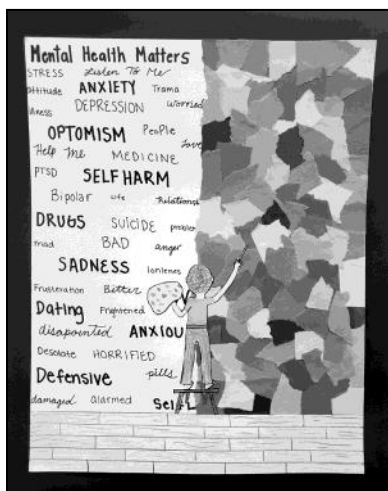 Mental Health Matters
STRESS Listen To Me
attitude ANXIETY Trama
DEPRESSION worried
OPTOMISM PeoPle
Help Me MEDICINE Love
PTSD SELF HARM
Bipolar Life Relationsh
DRUGS SUICIDE problem
mad BAD anger
SADNESS lonlenes
Frusteration Bitter
Dating Frightened
disapointed ANXIOU
Desolate HORRIFIED
Defensive pills
damaged alarmed Self